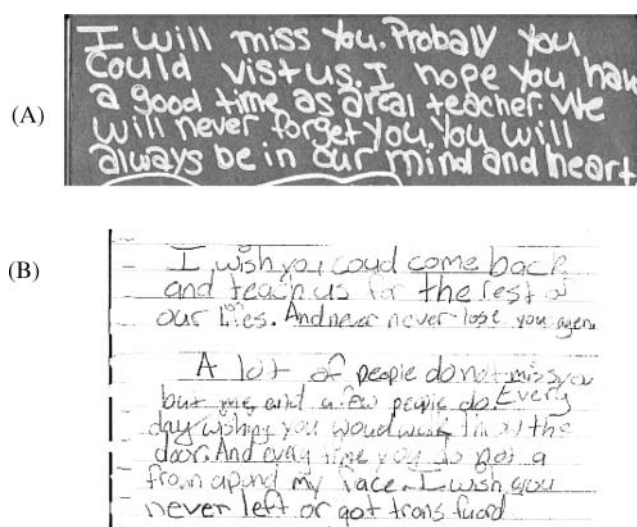 (A)
I will miss you. Probaly you
Could vist us. I hope you have
a good time as a real teacher. We
will never forget you. You will
always be in our mind and heart
(B)
I wish you coud come back
and teach us for the rest of
our lifes. And never never lose you agen.
A lot of people do not miss you
but me, and a few people do. Every
day wishing you woud walk throu the
door. And every time you do not a
frown apund my face. I wish you
never left or got trans fuard